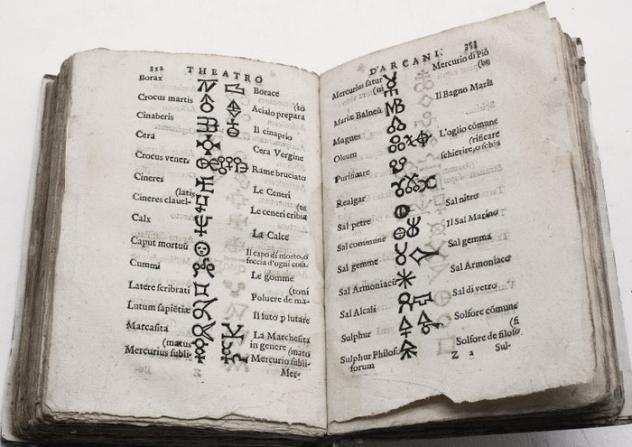 352 THEATRO
Borax Borace
Crocus martis Aciaio prepara (to
Cinaberis Il cinaprio
Cera Cera Vergine
Crocus vener9 Rame bruciato
Cineres Le Ceneri
Cineres clauel- (latis Le ceneri cribra (te
Calx La Calce
Caput mortuũ Il capo di morto, o
feccia d'ogni cosa.
Cummi Le gomme
Latere scribrati Poluere de ma- (toni
Lutum sapiẽtiæ Il luto p lutare
Marcasita La Marchesita
in genere
Mercurius subli- (matus Mercurio subli- (mato
Mer-
D'ARCANI.
Mercurius satur (ni Mercurio di Piõ (bo
Mariæ Balneũ Il Bagno Mariæ
Magnes
Oleum L'oglio cõmune
Purificare schierire, o schia (rificare
Realgar
Sal petre Sal nitro
Sal commune Il Sal Marino
Sal gemme Sal gemma
Sal Armoniacũ Sal Armoniaco
Sal Alcali Sal di vetro
Sulphur Solfore cõmune
Sulphur Philoso- Solfore de filoso- (fi
forum Z 2 Sul-